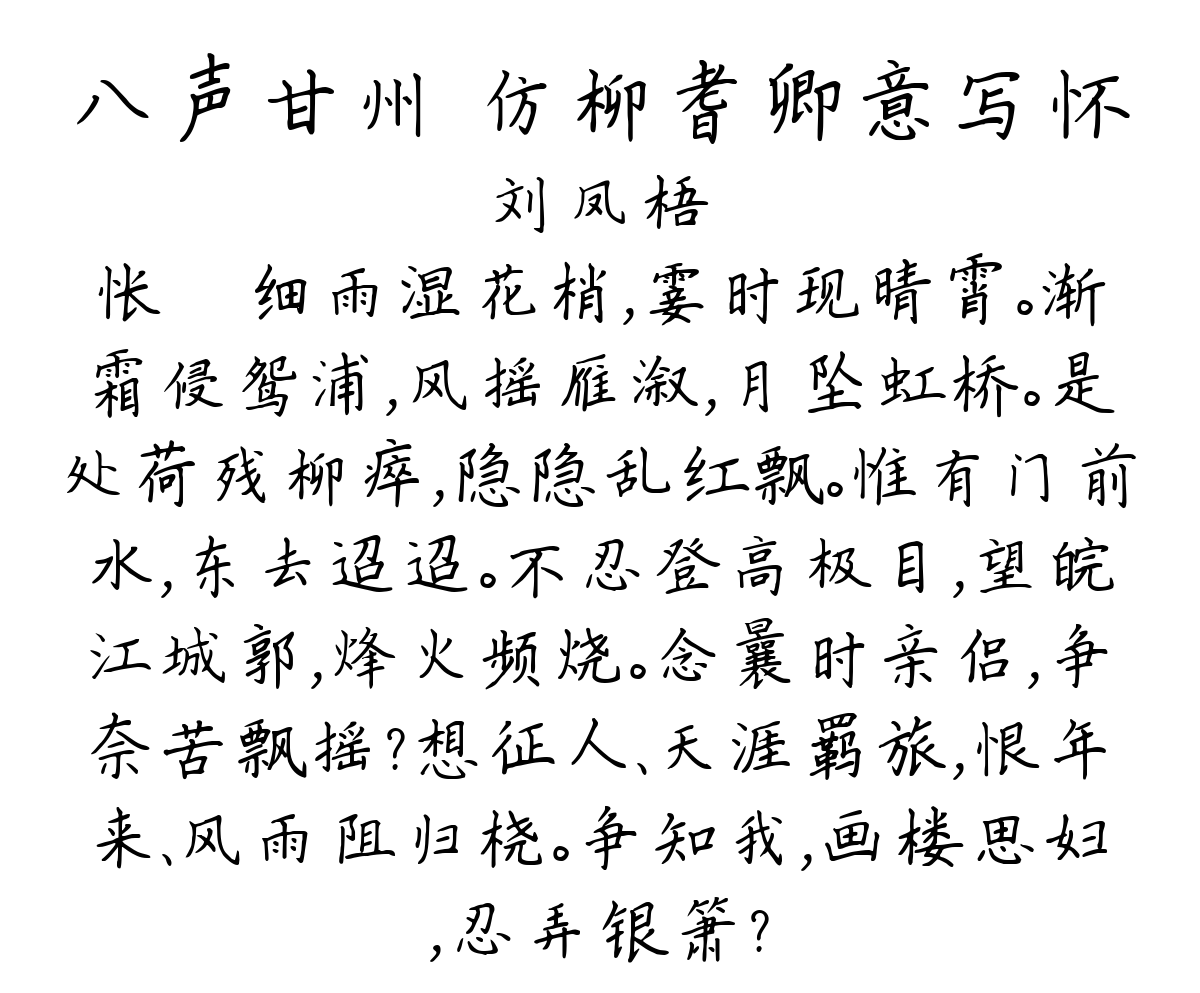 八声甘州 仿柳耆卿意写怀
刘凤梧
怅 细雨湿花梢,霎时现晴霄。渐
霜侵鸳浦,风摇雁溆,月坠虹桥。是
处荷残柳瘁,隐隐乱红飘。惟有门前
水,东去迢迢。不忍登高极目,望皖
江城郭,烽火频烧。念曩时亲侣,争
奈苦飘摇?想征人、天涯羁旅,恨年
来、风雨阻归桡。争知我,画楼思妇
,忍弄银箫?